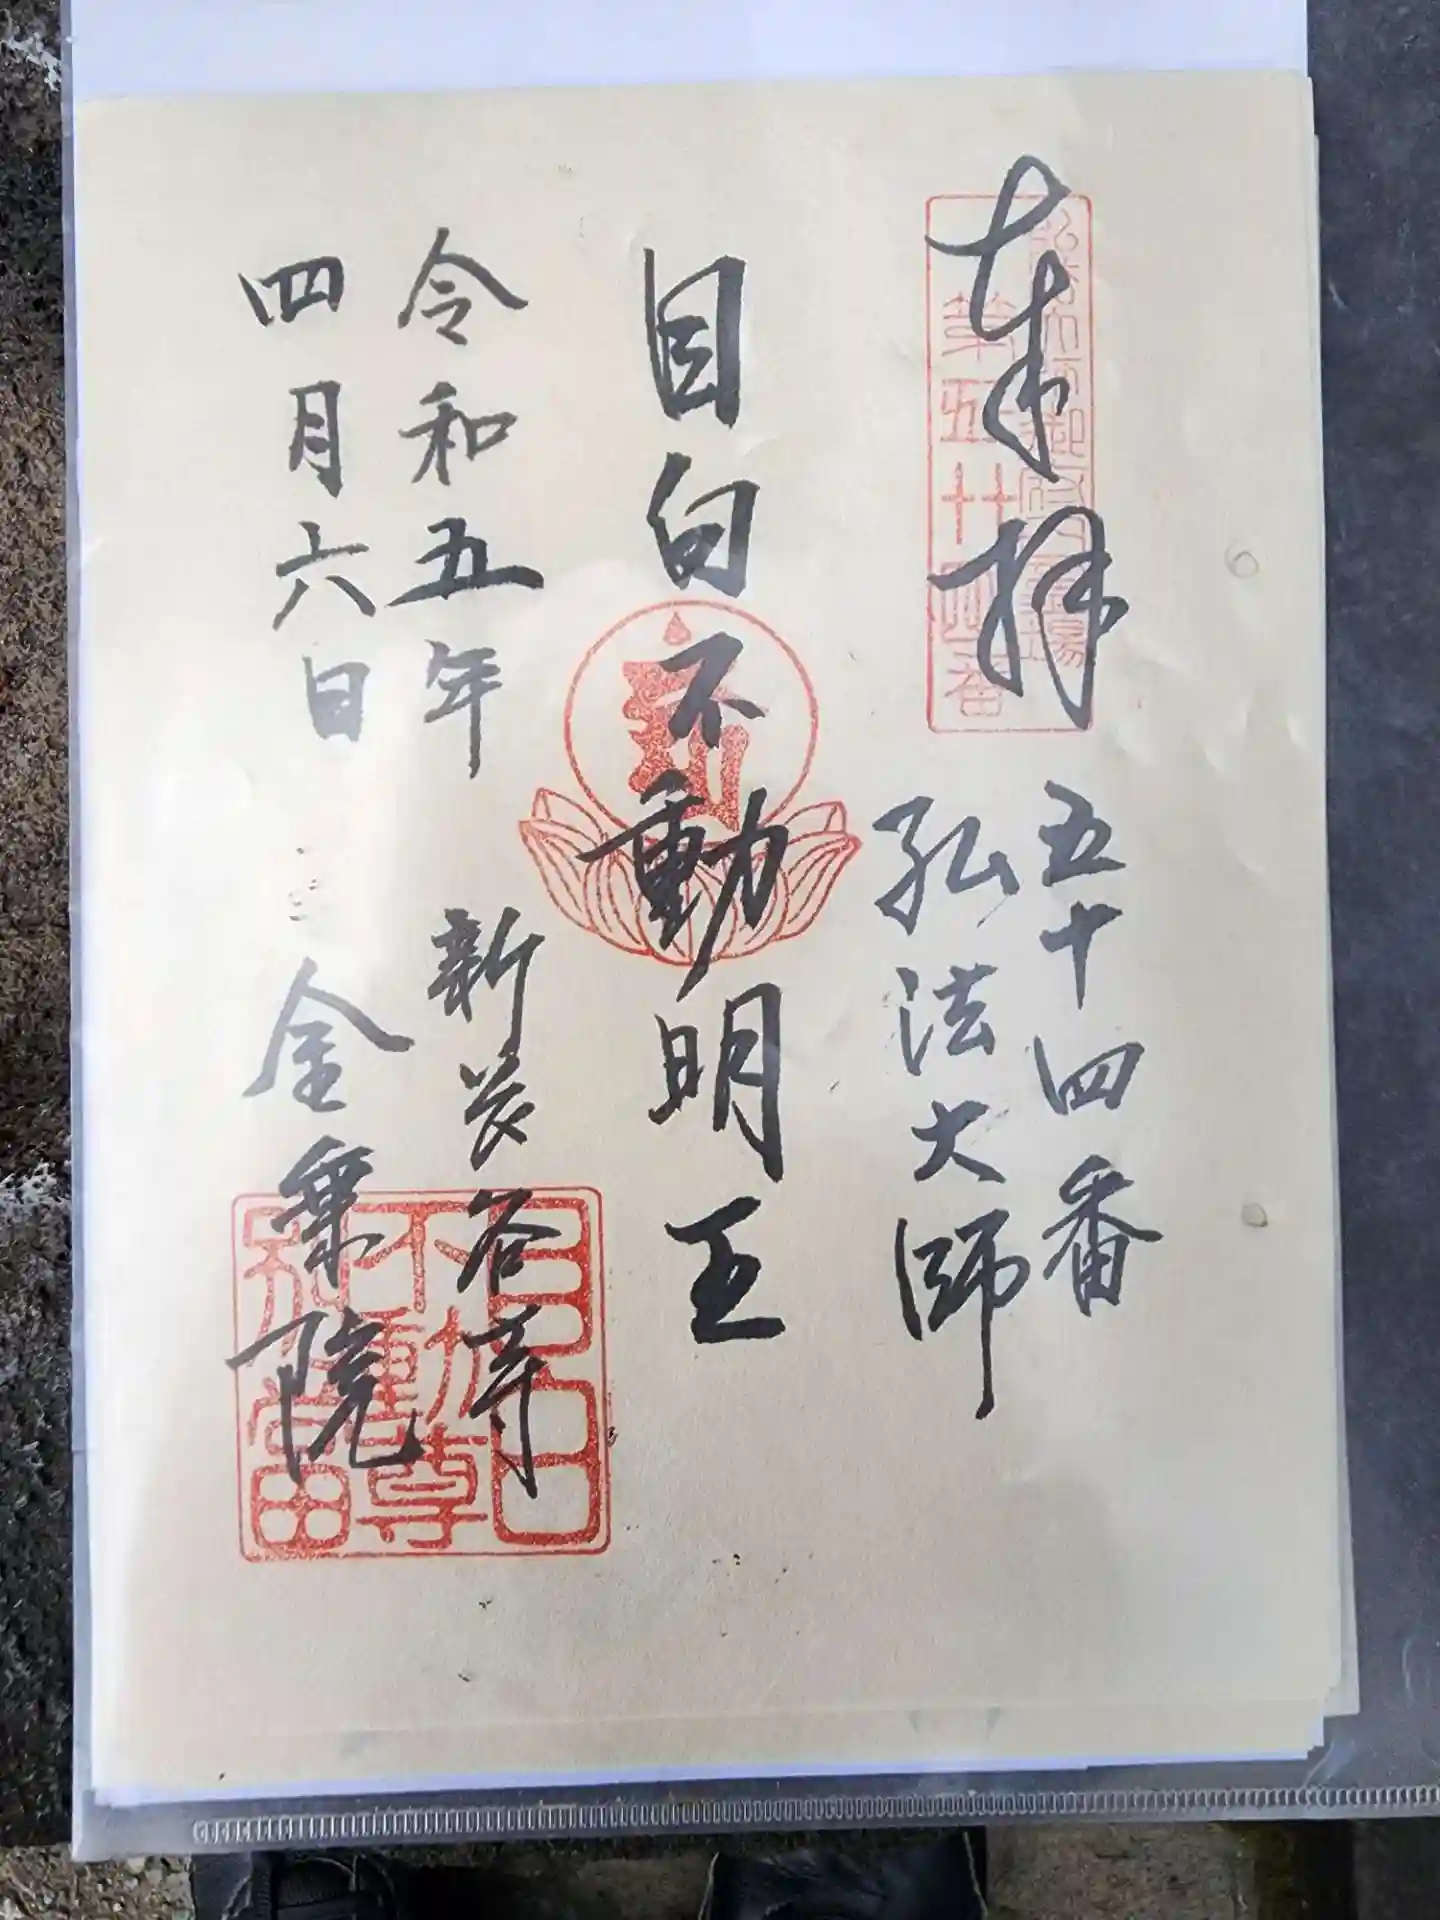 奉拝
五十四番
弘法大師
目白不動明王
令和五年
四月六日
新長谷寺
金乗院
弘法大師御府内霊場
第五十四番